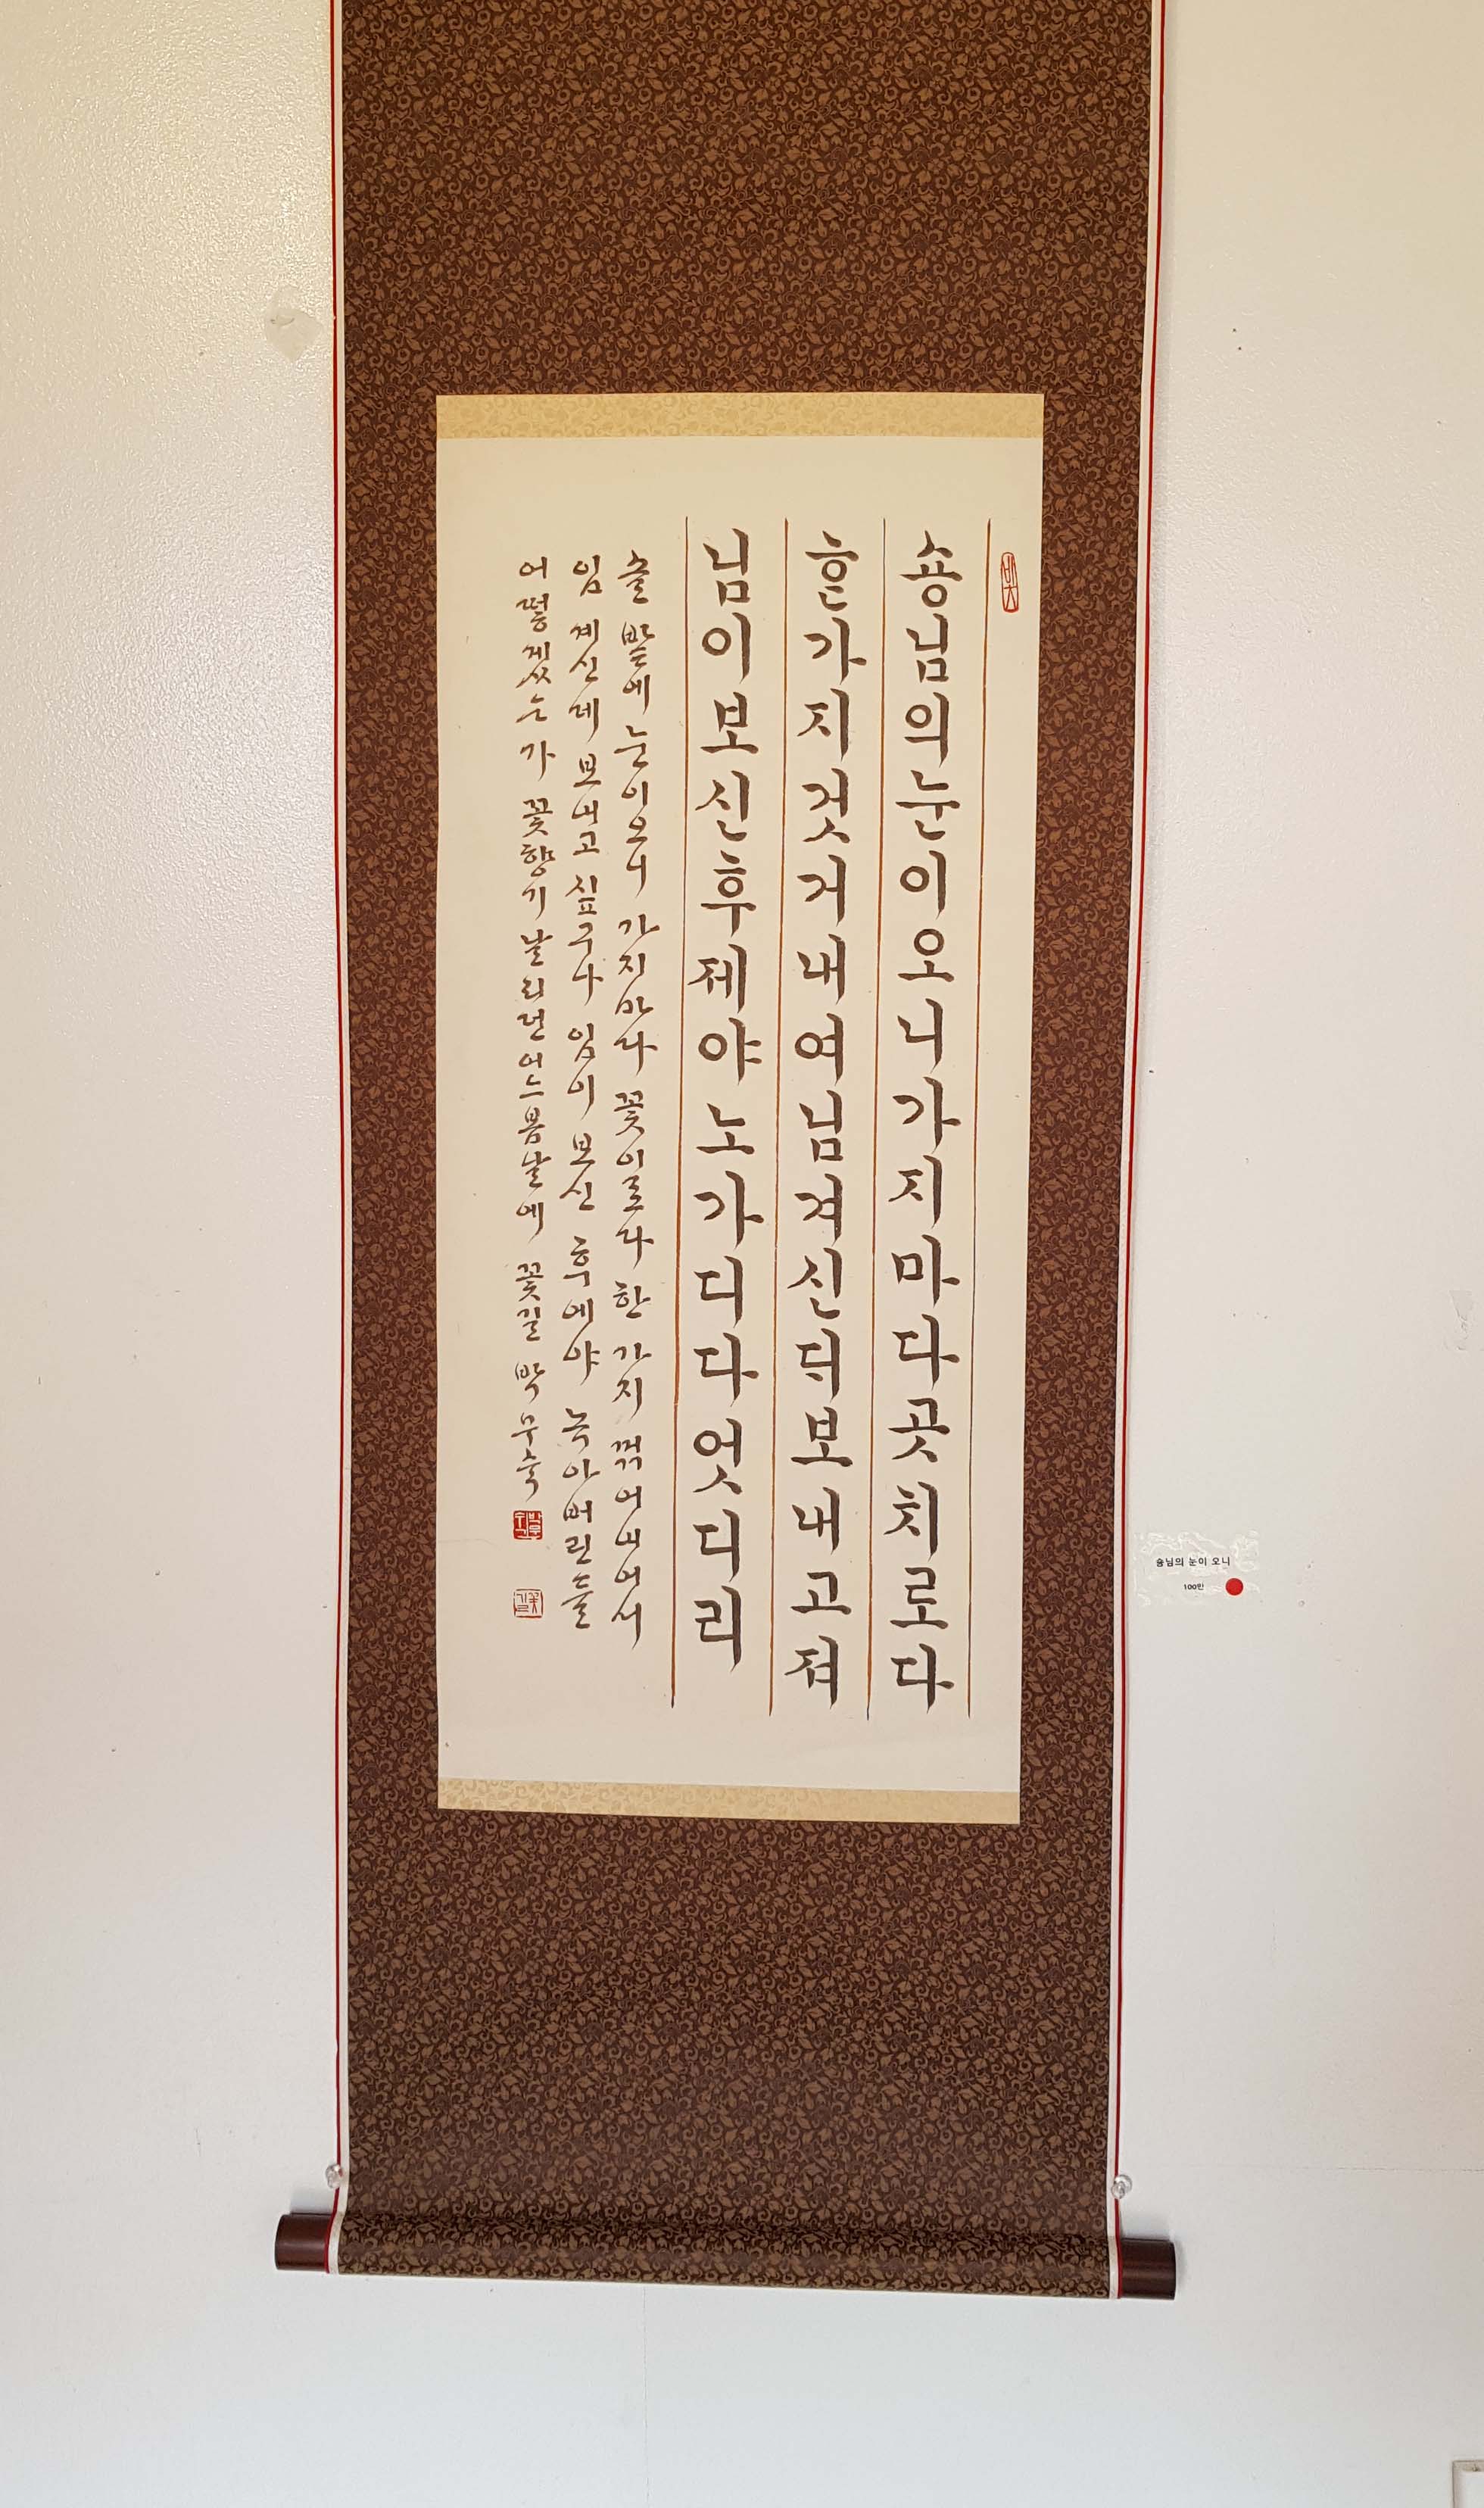 숑님의눈이오니가지마다곳치로다
ᄒᆞᆫ가지것거내여님겨신ᄃᆡ보내고져
님이보신후제야노가디다엇디리
솔 밭에 눈이오니 가지마다 꽃이로다 한 가지 꺾어내어서
임 계신데 보내고 싶구나 임이 보신 후에야 녹아버린들
어떻겠는가 꽃향기 날리던 어느 봄날에 꽃길 박무숙
박무숙
꽃길
숑님의 눈이 오니
100만